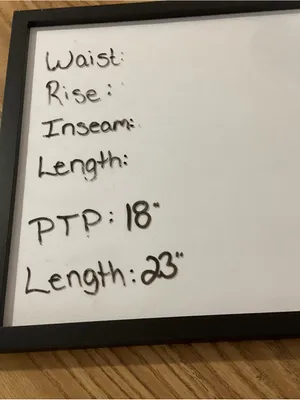 Waist:
Rise:
Inseam:
Length:
PTP: 18"
Length: 23"